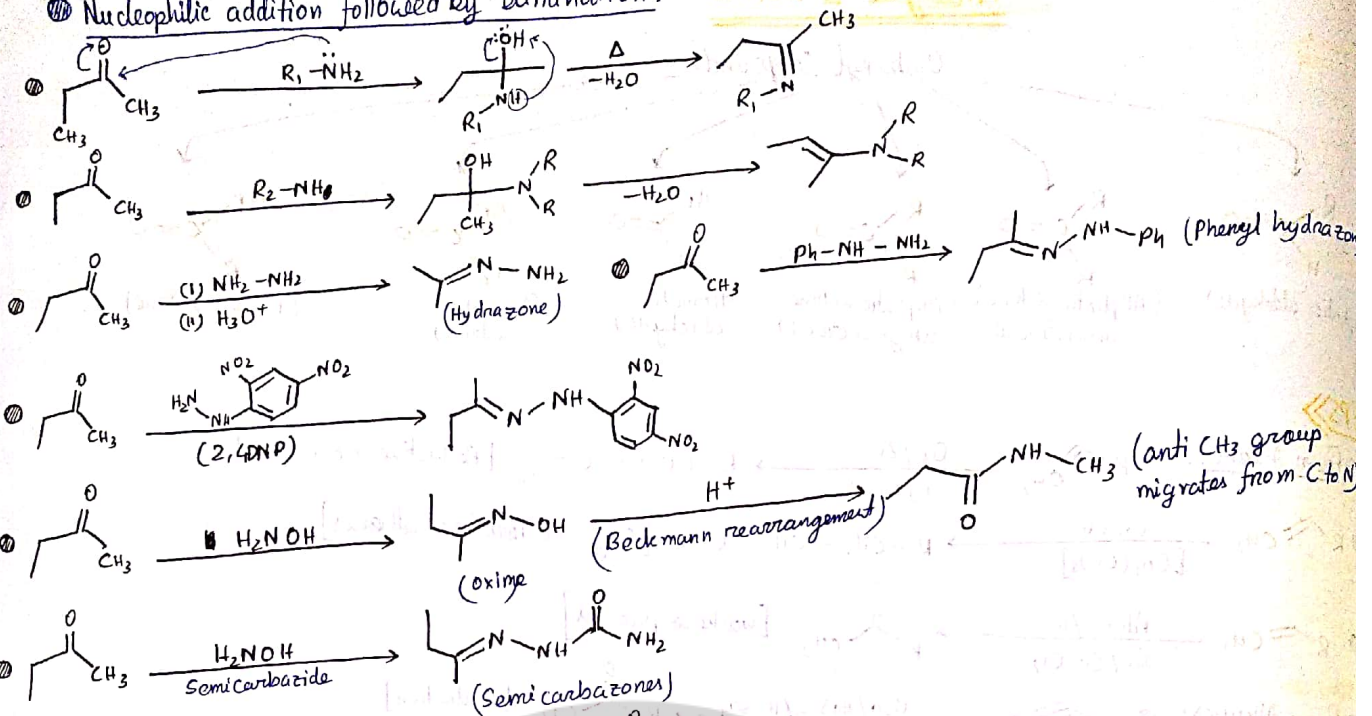 Nucleophilic addition followed by
O CH3 CH3
R1-NH2
:ÖH NH R1
Δ
-H2O
CH3 N R1
O CH3
R2-NH
OH N R R CH3
-H2O
N R R
O CH3
(i) NH2-NH2
(ii) H3O+
N-NH2
(Hydrazone)
O CH3
Ph-NH-NH2
N NH-Ph (Phenyl hydrazon
O CH3
H2N NH NO2 NO2
(2,4DNP)
N NH NO2 NO2
O CH3
H2NOH
N-OH
(oxime
H+
(Beckmann rearrangement)
NH-CH3 O
(anti CH3 group
migrates from C to N)
O CH3
H2NOH
Semicarbazide
N-NH O NH2
(Semicarbazones)